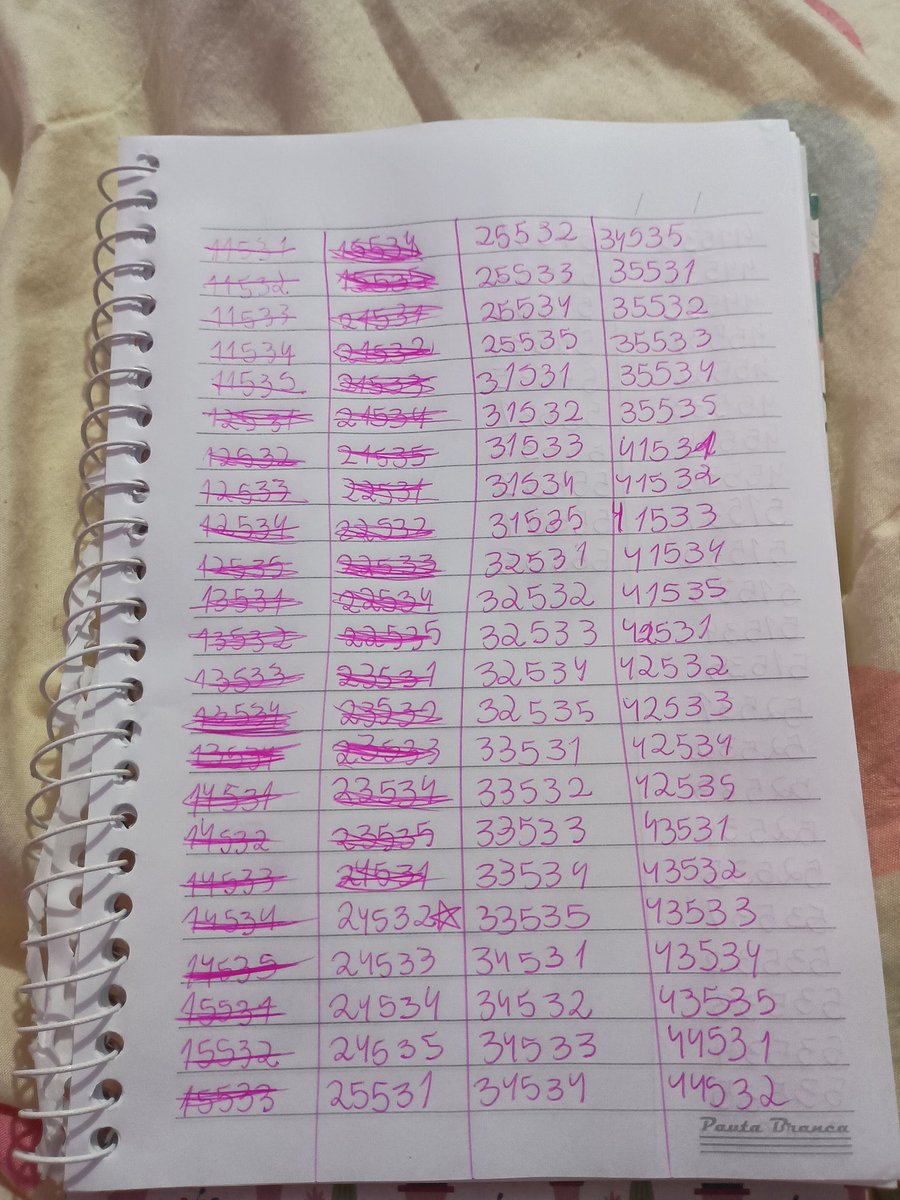 11531
11532
11533
11534
11535
12531
12532
12533
12534
12535
13531
13532
13533
13534
13535
14531
14532
14533
14534
14535
15531
15532
15533
15534
15535
21531
21532
21533
21534
21535
22531
22532
22533
22534
22535
23531
23532
23533
23534
23535
24531
24532☆
24533
24534
24535
25531
25532
25533
25534
25535
31531
31532
31533
31534
31535
32531
32532
32533
32534
32535
33531
33532
33533
33534
33535
34531
34532
34533
34534
34535
35531
35532
35533
35534
35535
41531
41532
41533
41534
41535
42531
42532
42533
42534
42535
43531
43532
43533
43534
43535
44531
44532
Pauta Branca